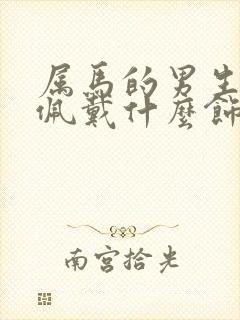 属馬的男生
佩戴什麼飾
南宫拾光